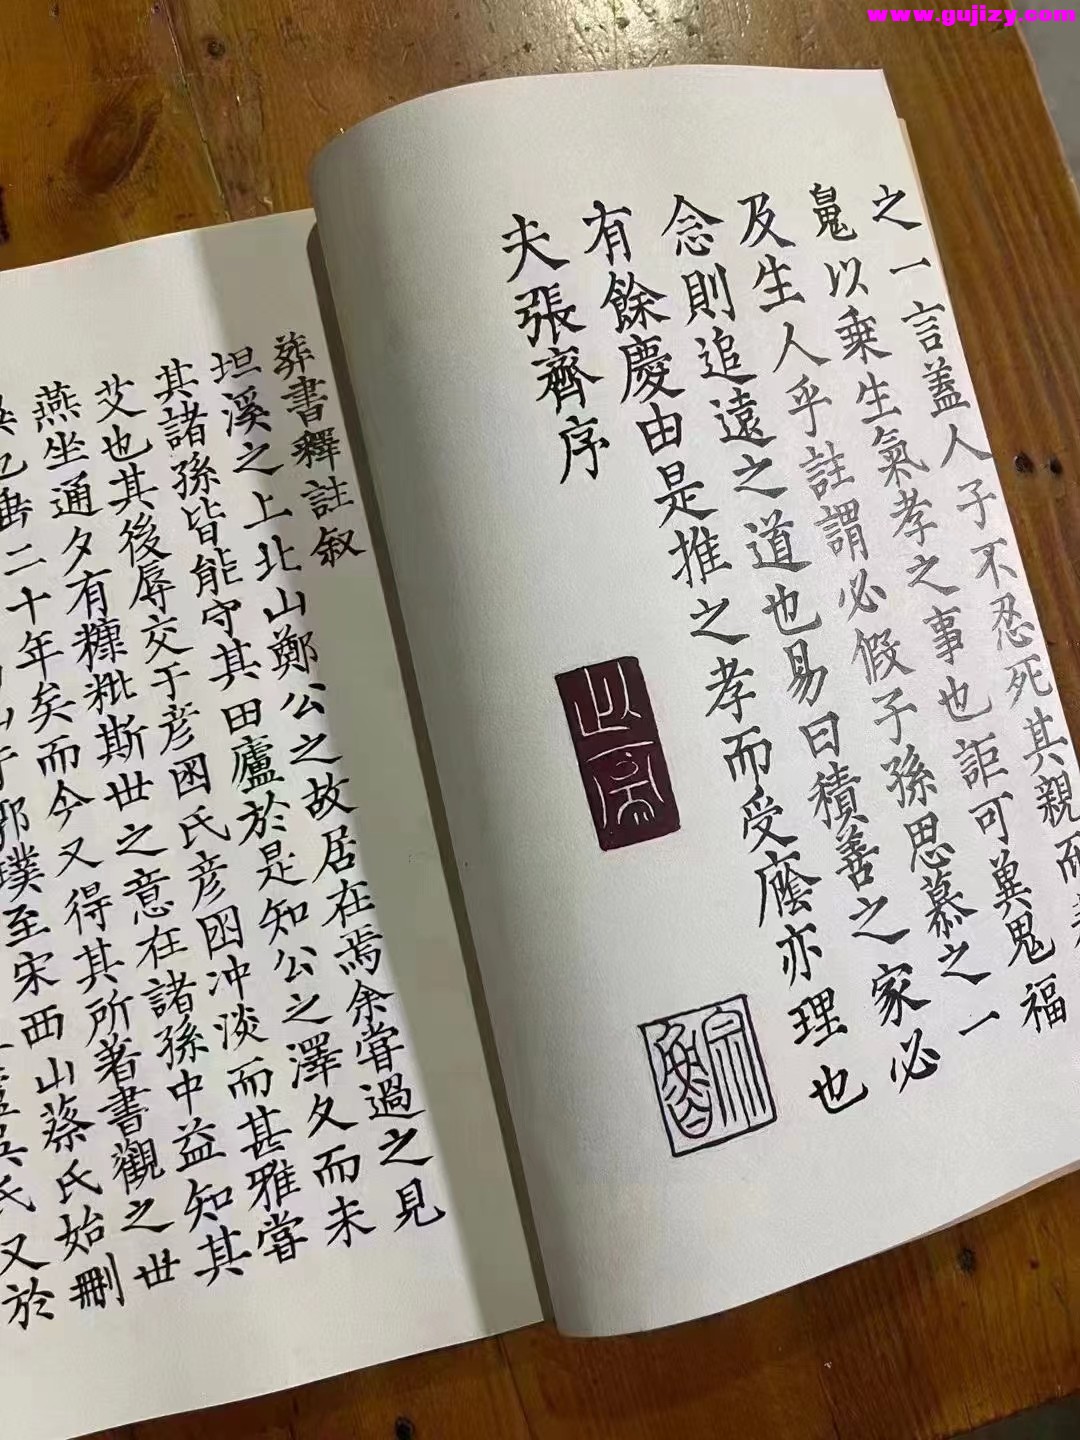 之一言蓋人子不忍死其親而
䰟以乘生氣孝之事也詎可冀鬼福
及生人乎註謂必假子孫思慕之一
念則追遠之道也易曰積善之家必
有餘慶由是推之孝而受廕亦理也
夫張齊序
葬書釋註叙
坦溪之上北山鄭公之故居在焉余嘗過之見
其諸孫皆能守其田廬於是知公之澤久而未
艾也其後辱交于彥囦氏彥囦冲淡而甚雅嘗
燕坐通夕有糠粃斯世之意在諸孫中益知其
二十年矣而今又得其所著書觀之世
郭璞至宋西山蔡氏始刪
吳氏又於
www.gujizy.com